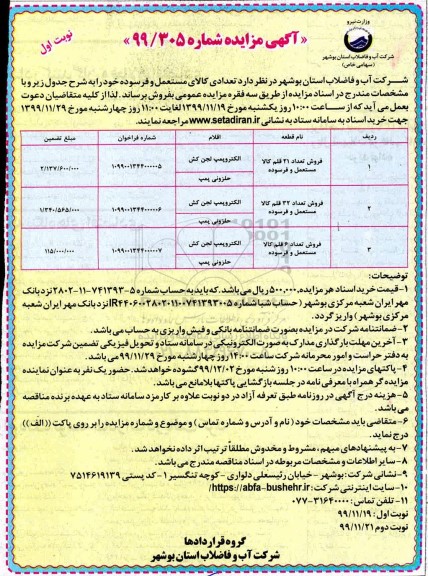 وزارت نیرو
شرکت آب و فاضلاب استان بوشهر
(سهامی خاص)
«آگهی مزایده شماره ۹۹/۳۰۵»
نوبت اول
شرکت آب و فاضلاب استان بوشهر در نظر دارد تعدادی کالای مستعمل و فرسوده خود را به شرح جدول زیر و با
مشخصات مندرج در اسناد مزایده از طریق سه فقره مزایده عمومی بفروش برساند. لذا از کلیه متقاضیان دعوت
بعمل می آید که از ساعت ۱۰:۰۰ روز یکشنبه مورخ ۱۳۹۹/۱۱/۱۹ لغایت ۱۱:۰۰ روز چهارشنبه مورخ ۱۳۹۹/۱۱/۲۹
جهت خرید اسناد به سامانه ستاد به نشانی www.setadiran.ir مراجعه نمایند.
ردیف نام قطعه اقلام شماره فراخوان مبلغ تضمین
۱ فروش تعداد ۲۱ قلم کالا مستعمل و فرسوده الکتروپمپ لجن کش حلزونی پمپ ۱۰۹۹۰۰۱۳۴۴۰۰۰۰۰۵ ۲/۱۳۷/۶۰۰/۰۰۰
۲ فروش تعداد ۳۲ قلم کالا مستعمل و فرسوده الکتروپمپ لجن کش حلزونی پمپ ۱۰۹۹۰۰۱۳۴۴۰۰۰۰۰۶ ۱/۳۴۰/۵۶۵/۰۰۰
۳ فروش تعداد ۶ قلم کالا مستعمل و فرسوده الکتروپمپ لجن کش حلزونی پمپ ۱۰۹۹۰۰۱۳۴۴۰۰۰۰۰۷ ۱۱۵/۰۰۰/۰۰۰
توضیحات:
۱-قیمت خرید اسناد هر مزایده، ۵۰۰,۰۰۰ ریال می باشد، که باید به حساب شماره ۵-۷۴۱۳۹۳-۱۱-۲۸۰۲ نزد بانک
مهر ایران شعبه مرکزی بوشهر ( حساب شبا شماره IR۴۴۰۶۰۰۲۸۰۲۰۱۱۰۰۷۴۱۳۹۳۰۰۵ نزد بانک مهر ایران شعبه
مرکزی بوشهر) واریز گردد.
۲-ضمانتنامه شرکت در مزایده بصورت ضمانتنامه بانکی و فیش واریزی به حساب می باشد.
۳-آخرین مهلت بارگذاری مدارک به صورت الکترونیکی در سامانه ستاد و تحویل فیزیکی تضمین شرکت مزایده
به دفتر حراست و امور محرمانه شرکت ساعت ۱۴:۰۰ روز چهارشنبه مورخ ۹۹/۱۱/۲۹ می باشد.
۴-پاکتهای مزایده در ساعت ۱۰:۰۰ روز شنبه مورخ ۹۹/۱۲/۰۲ گشوده خواهد شد. حضور یک نفر به عنوان نماینده
مزایده گر همراه با معرفی نامه در جلسه بازگشایی پاکتها بلامانع می باشد.
۵-هزینه درج آگهی در روزنامه طبق تعرفه آزاد در دو نوبت علاوه بر کارمزد سامانه ستاد به عهده برنده مناقصه
می باشد.
۶-متقاضی باید مشخصات خود (نام و آدرس و شماره تماس) و موضوع و شماره مزایده را بر روی پاکت ((الف))
درج نماید.
۷-به پیشنهادهای مبهم، مشروط و مخدوش مطلقاً ترتیب اثر داده نخواهد شد.
۸-سایر اطلاعات و مشخصات مربوطه در اسناد مناقصه مندرج می باشد.
۹-نشانی شرکت: بوشهر-خیابان رئیسعلی دلواری-کوچه تنگسیر ۱-کد پستی ۷۵۱۴۶۱۹۱۳۹
۱۰-سایت اینترنتی شرکت: https://abfa-bushehr.ir/
۱۱-تلفن تماس: ۳۱۶۴۰۰۰۰-۰۷۷
نوبت اول: ۹۹/۱۱/۱۹
نوبت دوم ۹۹/۱۱/۲۱
گروه قراردادها
شرکت آب و فاضلاب استان بوشهر